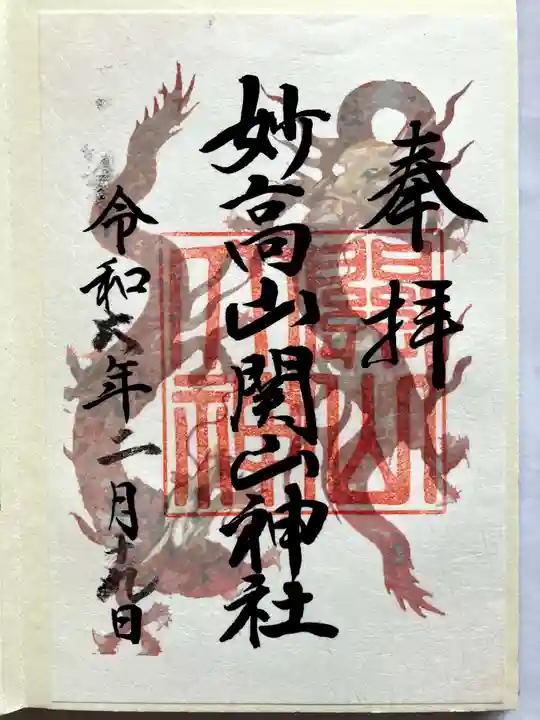 奉拝
妙高山関山神社
令和六年二月十九日
関山
大神